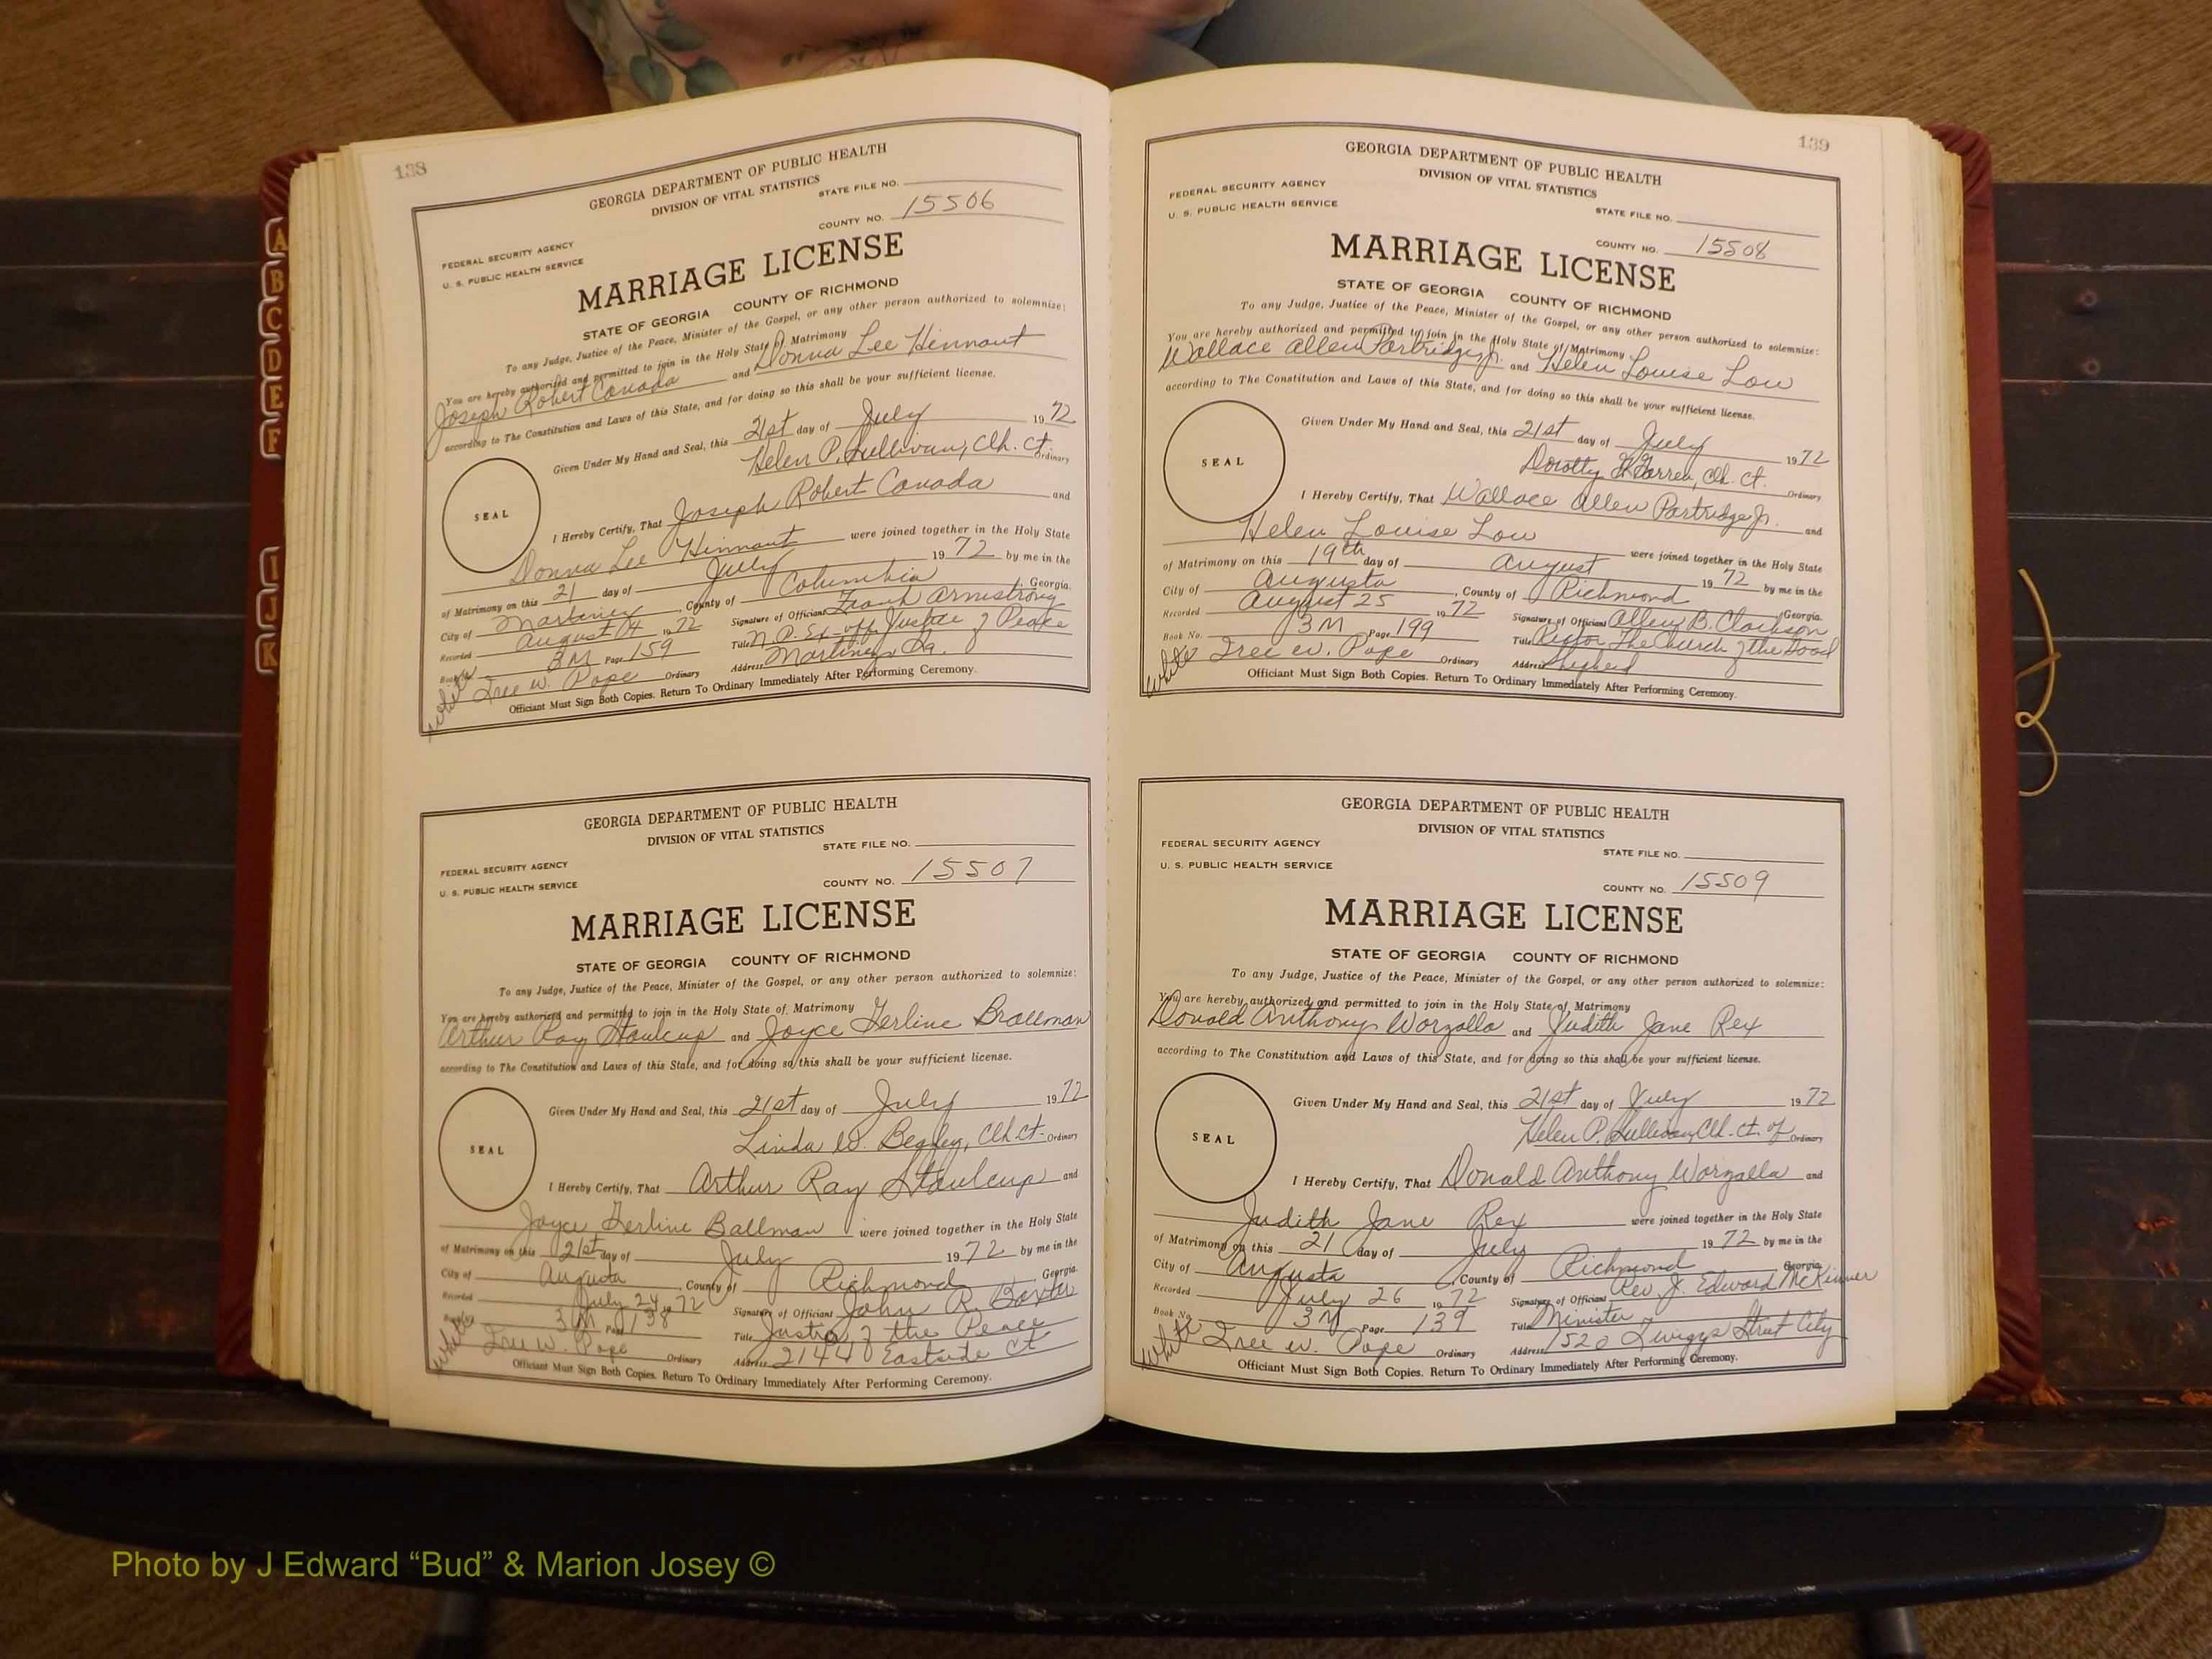 A
B
C
D
E
F
I
J
K
138
GEORGIA DEPARTMENT OF PUBLIC HEALTH
DIVISION OF VITAL STATISTICS
STATE FILE NO.
COUNTY NO. 15506
FEDERAL SECURITY AGENCY
U. S. PUBLIC HEALTH SERVICE
MARRIAGE LICENSE
STATE OF GEORGIA COUNTY OF RICHMOND
To any Judge, Justice of the Peace, Minister of the Gospel, or any other person authorized to solemnize:
You are hereby authorized and permitted to join in the Holy State of Matrimony
Joseph Robert Canada and Donna Lee Hinnant
according to The Constitution and Laws of this State, and for doing so this shall be your sufficient license.
Given Under My Hand and Seal, this 21st day of July 1972
Helen P. Sullivan, Clk. Ct. Ordinary
SEAL
I Hereby Certify, That Joseph Robert Canada and
Donna Lee Hinnant were joined together in the Holy State
of Matrimony on this 21 day of July 1972 by me in the
City of Martinez, County of Columbia, Georgia.
Recorded August 14 1972 Signature of Officiant Frank Armstrong
Book No. 3M Page 159 Title N. P. Ex-off. Justice of Peace
White Tree W. Pope Ordinary Address Martinez, Ga.
Officiant Must Sign Both Copies. Return To Ordinary Immediately After Performing Ceremony.
GEORGIA DEPARTMENT OF PUBLIC HEALTH
DIVISION OF VITAL STATISTICS
STATE FILE NO.
FEDERAL SECURITY AGENCY
U. S. PUBLIC HEALTH SERVICE
COUNTY NO. 15507
MARRIAGE LICENSE
STATE OF GEORGIA COUNTY OF RICHMOND
To any Judge, Justice of the Peace, Minister of the Gospel, or any other person authorized to solemnize:
You are hereby authorized and permitted to join in the Holy State of Matrimony
Arthur Ray Staulcup and Joyce Gerline
according to The Constitution and Laws of this State, and for doing so this shall be your sufficient license.
Given Under My Hand and Seal, this 21st day of July 1972
Linda W. Begley, Clk. Ct. Ordinary
SEAL
I Hereby Certify, That Arthur Ray Staulcup and
Joyce Gerline Ballman were joined together in the Holy State
of Matrimony on this 21st day of July 1972 by me in the
City of Augusta, County of Richmond, Georgia.
Recorded July 24 1972 Signature of Officiant John R. Baxter
3M Page 138 Title Justice of the Peace
White Tree W. Pope Ordinary Address 2144 Eastside Ct
Officiant Must Sign Both Copies. Return To Ordinary Immediately After Performing Ceremony.
139
GEORGIA DEPARTMENT OF PUBLIC HEALTH
DIVISION OF VITAL STATISTICS
FEDERAL SECURITY AGENCY
U. S. PUBLIC HEALTH SERVICE
STATE FILE NO.
COUNTY NO. 15508
MARRIAGE LICENSE
STATE OF GEORGIA COUNTY OF RICHMOND
To any Judge, Justice of the Peace, Minister of the Gospel, or any other person authorized to solemnize:
You are hereby authorized and permitted to join in the Holy State of Matrimony
Wallace Allen Partridge Jr. and Helen Louise Low
according to The Constitution and Laws of this State, and for doing so this shall be your sufficient license.
Given Under My Hand and Seal, this 21st day of July 1972
Clk. Ct. Ordinary
SEAL
I Hereby Certify, That Wallace Allen Partridge Jr. and
Helen Louise Low were joined together in the Holy State
of Matrimony on this 19th day of August 1972 by me in the
City of Augusta, County of Richmond, Georgia.
Recorded August 25 1972 Signature of Officiant Allen B. Clarkson
Book No. 3M Page 199 Title Rector The Church of the Good
White Tree W. Pope Ordinary Address Shepherd
Officiant Must Sign Both Copies. Return To Ordinary Immediately After Performing Ceremony.
GEORGIA DEPARTMENT OF PUBLIC HEALTH
DIVISION OF VITAL STATISTICS
FEDERAL SECURITY AGENCY
U. S. PUBLIC HEALTH SERVICE
STATE FILE NO.
COUNTY NO. 15509
MARRIAGE LICENSE
STATE OF GEORGIA COUNTY OF RICHMOND
To any Judge, Justice of the Peace, Minister of the Gospel, or any other person authorized to solemnize:
You are hereby authorized and permitted to join in the Holy State of Matrimony
Donald Anthony Worzalla and Judith Jane Rex
according to The Constitution and Laws of this State, and for doing so this shall be your sufficient license.
Given Under My Hand and Seal, this 21st day of July 1972
Helen P. Sullivan, Clk. Ct. of Ordinary
SEAL
I Hereby Certify, That Donald Anthony Worzalla and
Judith Jane Rex were joined together in the Holy State
of Matrimony on this 21 day of July 1972 by me in the
City of Augusta, County of Richmond Georgia.
Recorded July 26 1972 Signature of Officiant Rev. J. Edward McKinner
Book No. 3M Page 139 Title Minister
White Tree W. Pope Ordinary Address 1520 Twiggs Street City
Officiant Must Sign Both Copies. Return To Ordinary Immediately After Performing Ceremony.
Photo by J Edward “Bud” & Marion Josey ©